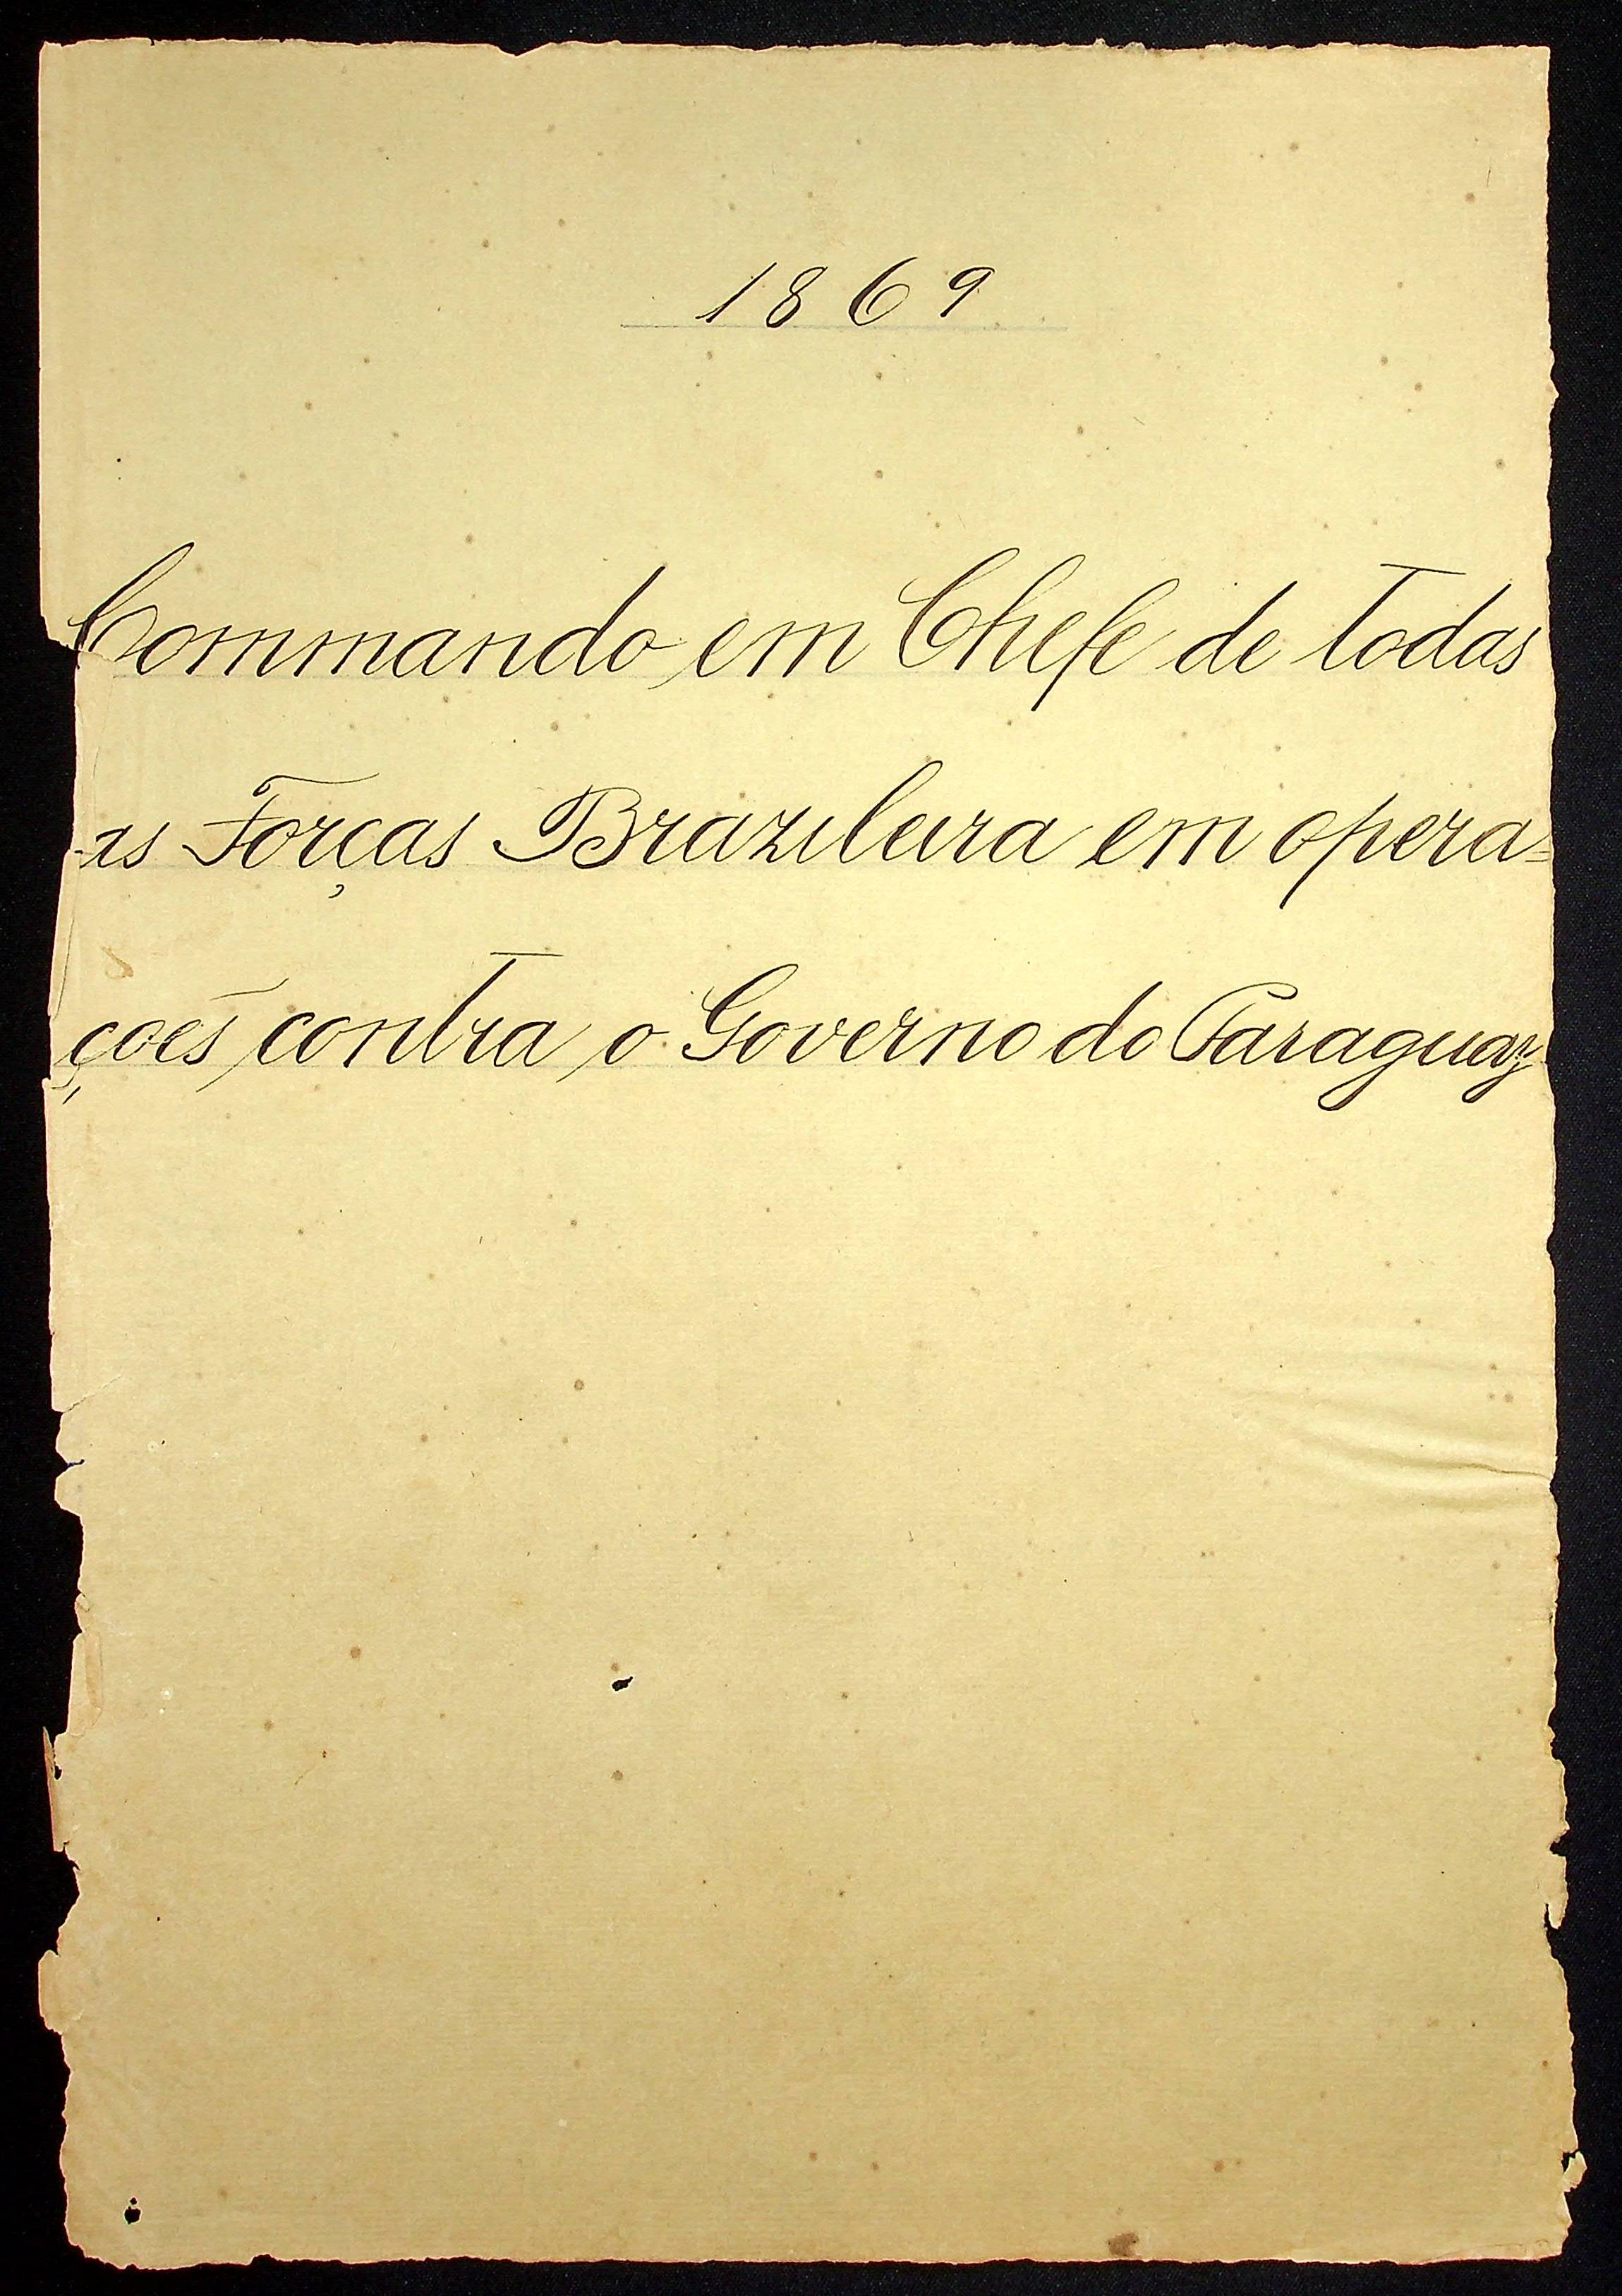 1869
Commando em Chefe de todas
as Forças Brazileira em opera=
ções contra o Governo do Paraguay